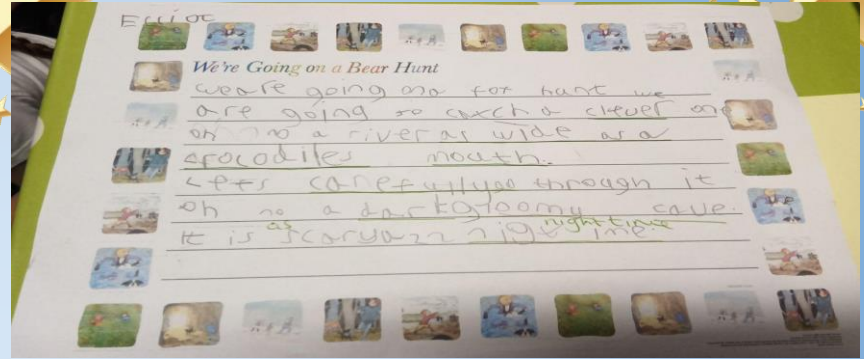 Elliot
We're Going on a Bear Hunt
we are going on a fox hunt we
are going to catch a clever one
oh no a river as wide as a
crocodiles mouth.
Lets carefully go through it
oh no a dark gloomy cave.
as night time
It is scary